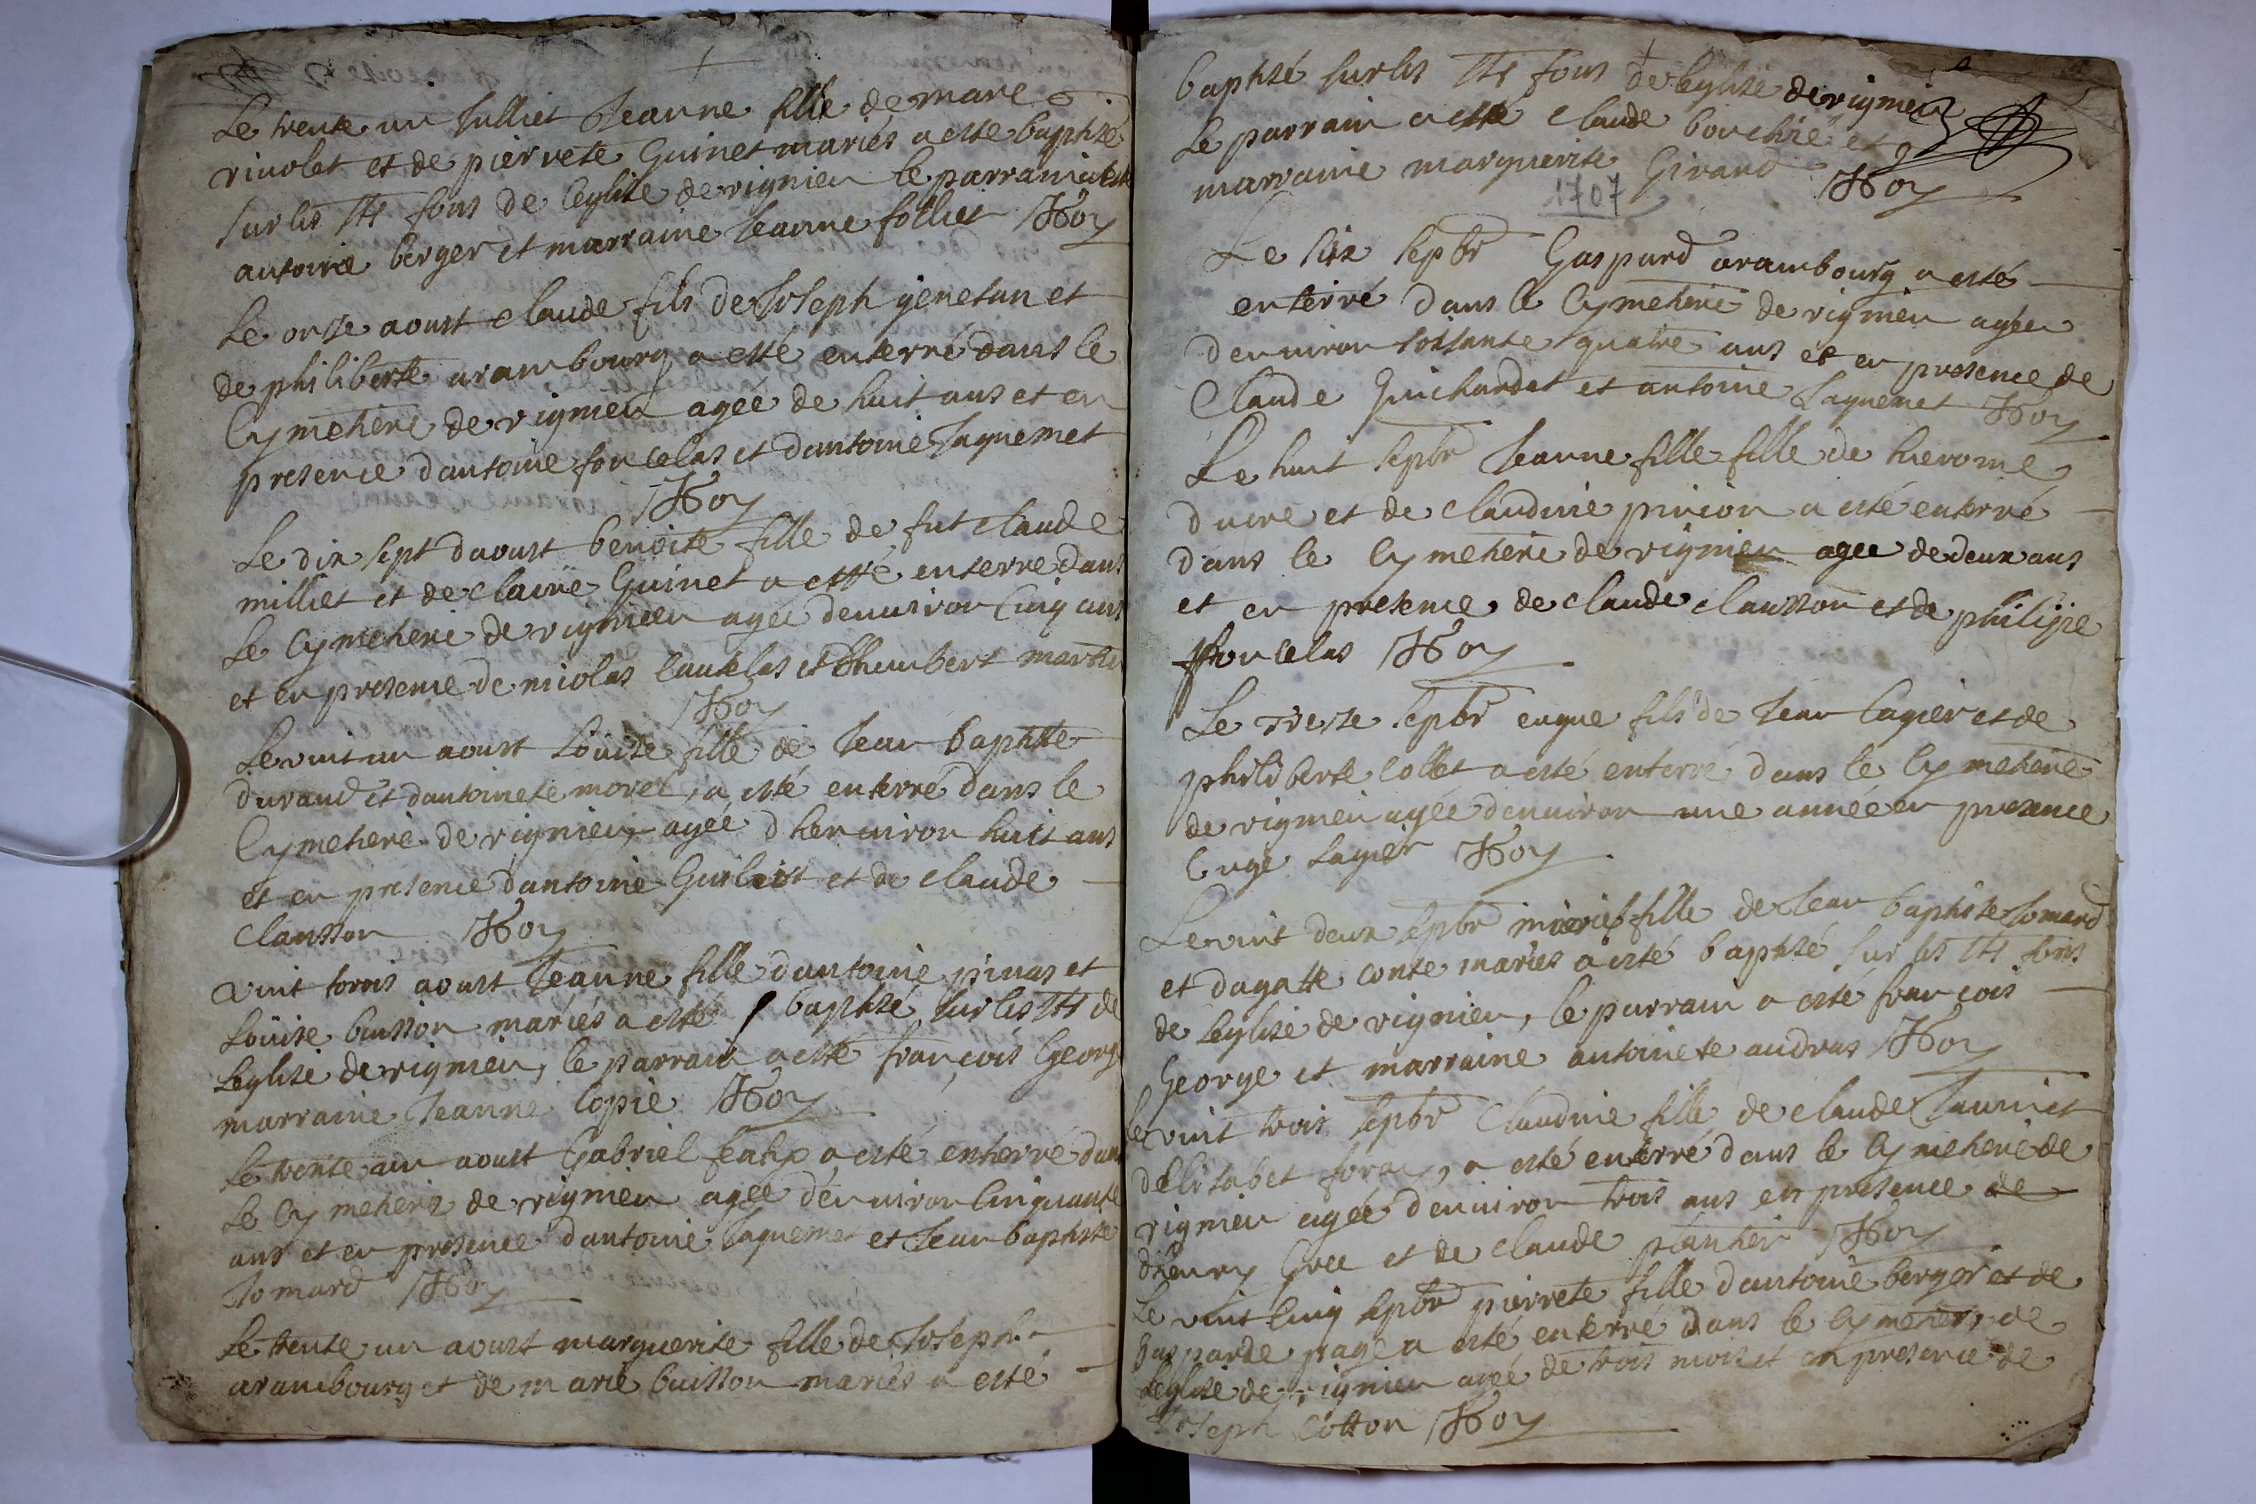 Le trente un Julliet Jeanne fille de marc
rivolet et de pierrete Guinet mariés a esté baptisé
sur les sts fons de leglise de vignieu le parrain a esté
antoine berger et marraine Jeanne folliet Roy
Le onze aoust claude fils de Joseph genetan et
de philiberte arambourg a esté enterré dans le
Cymetiere de vignieu agée de huit ans et en
presence dantoine forcelas et dantoine Jaquemet
Roy
Le dix sept daoust benoite fille de fut claude
milliet et de claire Guinet a esté enterre dans
Le Cymetiere de vignieu agée denuiron Cinq ans
et en presence de nicolas et humbert martin
Roy
Le vint un aoust Loüise fille de Jean baptiste
durand et dantoinete morel, a esté enterré dans le
Cymetiere de vignieu, agée dhenuiron huit ans
et en presence dantoine et de claude
Clausson Roy
vint trois aoust Jeanne fille dantoine pinas et
Loüise buisson mariés a esté baptisé sur les sts de
Leglise de vignieu, le parrain a esté françois George
marraine Jeanne Copie Roy
Le trente un aoust Gabriel a esté enterré dans
Le Cymetiere de vignieu agée d'enuiron Cinquante
ans et en presence dantoine Jaquemet et Jean baptiste
Jomard Roy
Le trente un aoust marguerite fille de Joseph
arambourg et de marie buisson mariés a esté
baptisé sur les sts fons de leglise de vignieu
Le parrain a esté claude bouchié et
marraine marguerite Girand Roy
1707
Le six sepbr Gaspard arambourg a esté
enterré dans le Cymetiere de vignieu agée
denuiron soissante quatre ans et en presence de
Claude Guichardet et antoine Jaquemet Roy
Le huit sepbr Jeanne fille fille de hierome
ducre et de claudine pinion a esté enterré
dans le Cymetiere de vignieu agee de deux ans
et en presence de claude clausson et de philipe
fforcelas Roy
Le treize sepbr eugue fils de Jean Cagier et de
philiberte collet a esté enterré dans le Cymetiere
de vignieu agée denuiron une année en presence
Roy
Le vint deux sepbr fille de Jean baptiste Jomard
et dagatte conte mariés a esté baptisé sur les sts fons
de Leglise de vignieu, le parrain a esté françois
George et marraine antoinete andras Roy
Le vint trois sepbr Claudine fille de claude
delisabet foray, a esté enterré dans le Cymetiere de
vignieu agée denuiron trois ans en presence de
dhenry et de claude plantier Roy
Le vint Cinq sepbr pierrete fille dantoine berger et de
Gasparde page a esté enterré dans le Cymetiere, de
Leglise de vignieu agée de trois mois et en presence de
Joseph Cotton Roy